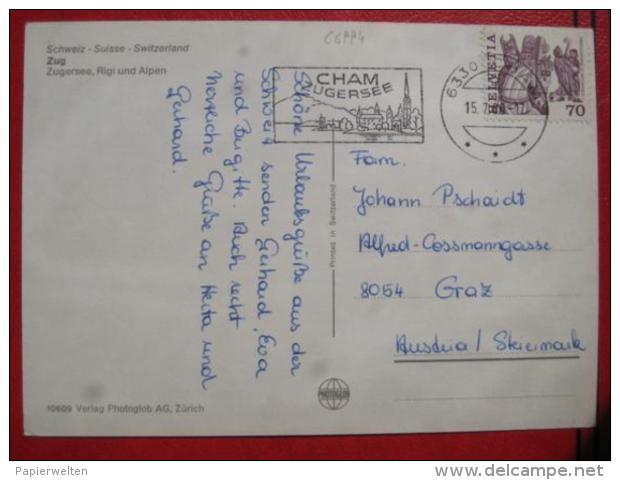 Schweiz - Suisse - Switzerland
Zug
Zugersee, Rigi und Alpen
CGPP4
CHAM
ZUGERSEE
6330
15.7.
HELVETIA
70
Schöne Urlaubsgrüße aus der
Schweiz senden Gerhard, Eva
und Brigitte. Auch recht
herzliche Grüße an Herta und
Gerhard.
Printed in Switzerland
Fam.
Johann Pschaidt
Alfred-Cossmanngasse
8054 Graz
Austria/Steiermark
PHOTOGLOB
10609 Verlag Photoglob AG, Zürich
Papierwelten
delcampe.net